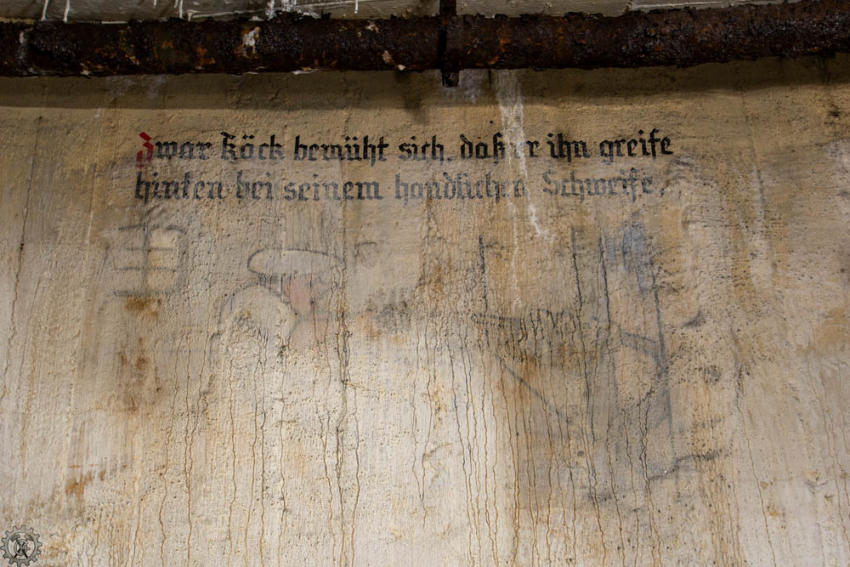 Zwar Köck bemüht sich, daß er ihn greife
hinten bei seinem handlichen Schweife,